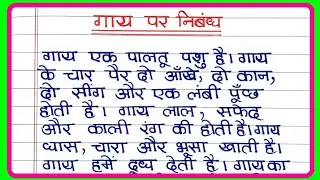 गाय पर निबंध
गाय एक पालतू पशु है। गाय
के चार पैर दो आँखे, दो कान,
दो सींग और एक लंबी पूँछ
होती है। गाय लाल, सफेद
और काली रंग की होती है। गाय
घास, चारा और भूसा खाती है।
गाय हमें दूध देती है। गाय का